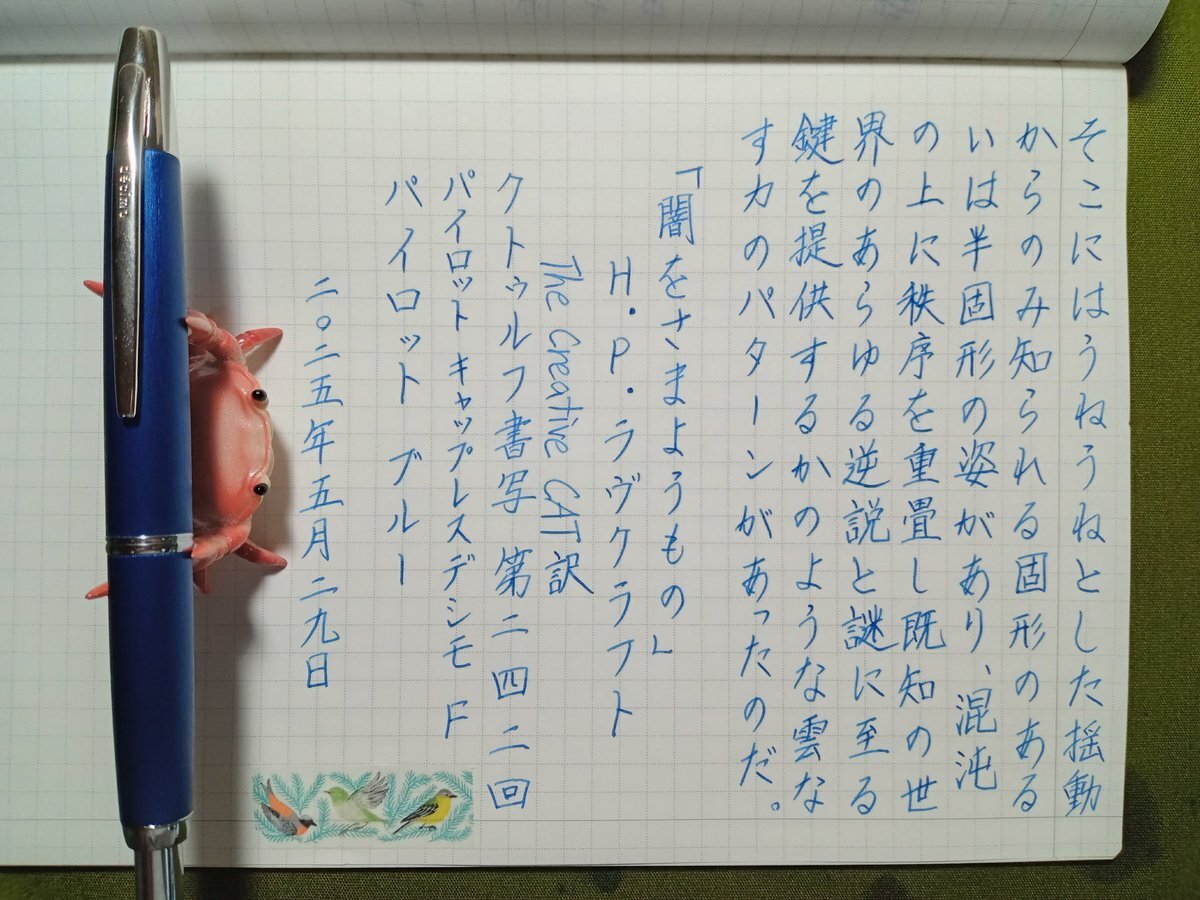 そこにはうねうねとした揺動
からのみ知られる固形のある
いは半固形の姿があり、混沌
の上に秩序を重畳し既知の世
界のあらゆる逆説と謎に至る
鍵を提供するかのような雲な
す力のパターンがあったのだ。
「闇をさまようもの」
H・P・ラヴクラフト
The Creative CAT訳
クトゥルフ書写 第二四二回
パイロット キャップレスデシモ F
パイロット ブルー
二〇二五年五月二九日
décimo